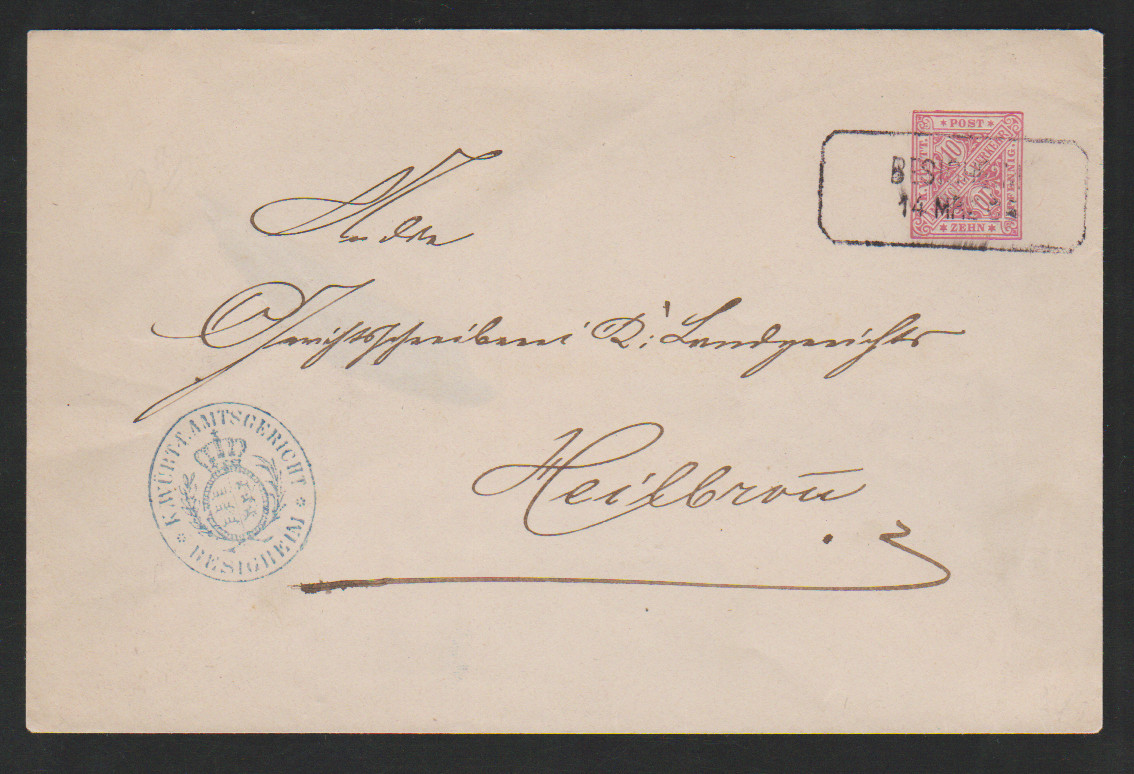 * POST *
K. WÜRTT.
10
PFENNIG.
* ZEHN *
14 MRZ
An die
Gerichtsschreiberei K. Landgerichts
Heilbronn
* K. WÜRTT. AMTSGERICHT *
BESIGHEIM